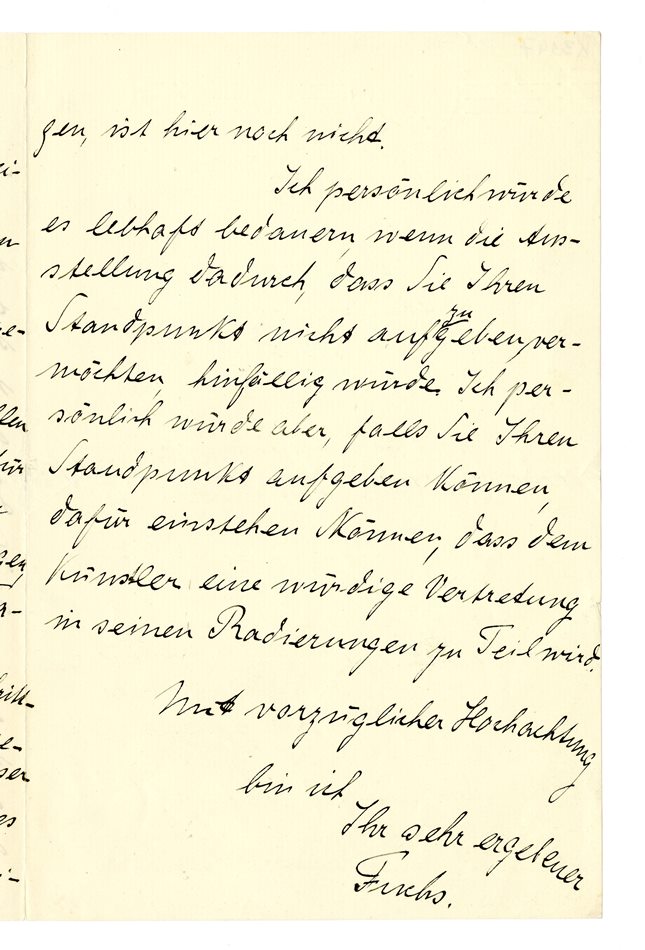 gen, ist hier noch nicht.
Ich persönlich würde
es lebhaft bedauern, wenn die Aus-
stellung dadurch, dass Sie Ihren
zu
Standpunkt nicht aufgeben, ver-
möchten, hinfällig würde. Ich per-
sönlich würde aber, falls Sie Ihren
Standpunkt aufgeben können,
dafür einstehen können, dass dem
Künstler eine würdige Vertretung
in seinen Radierungen zu Teil wird.
Mit vorzüglicher Hochachtung
bin ich
Ihr sehr ergebener
Fuchs.